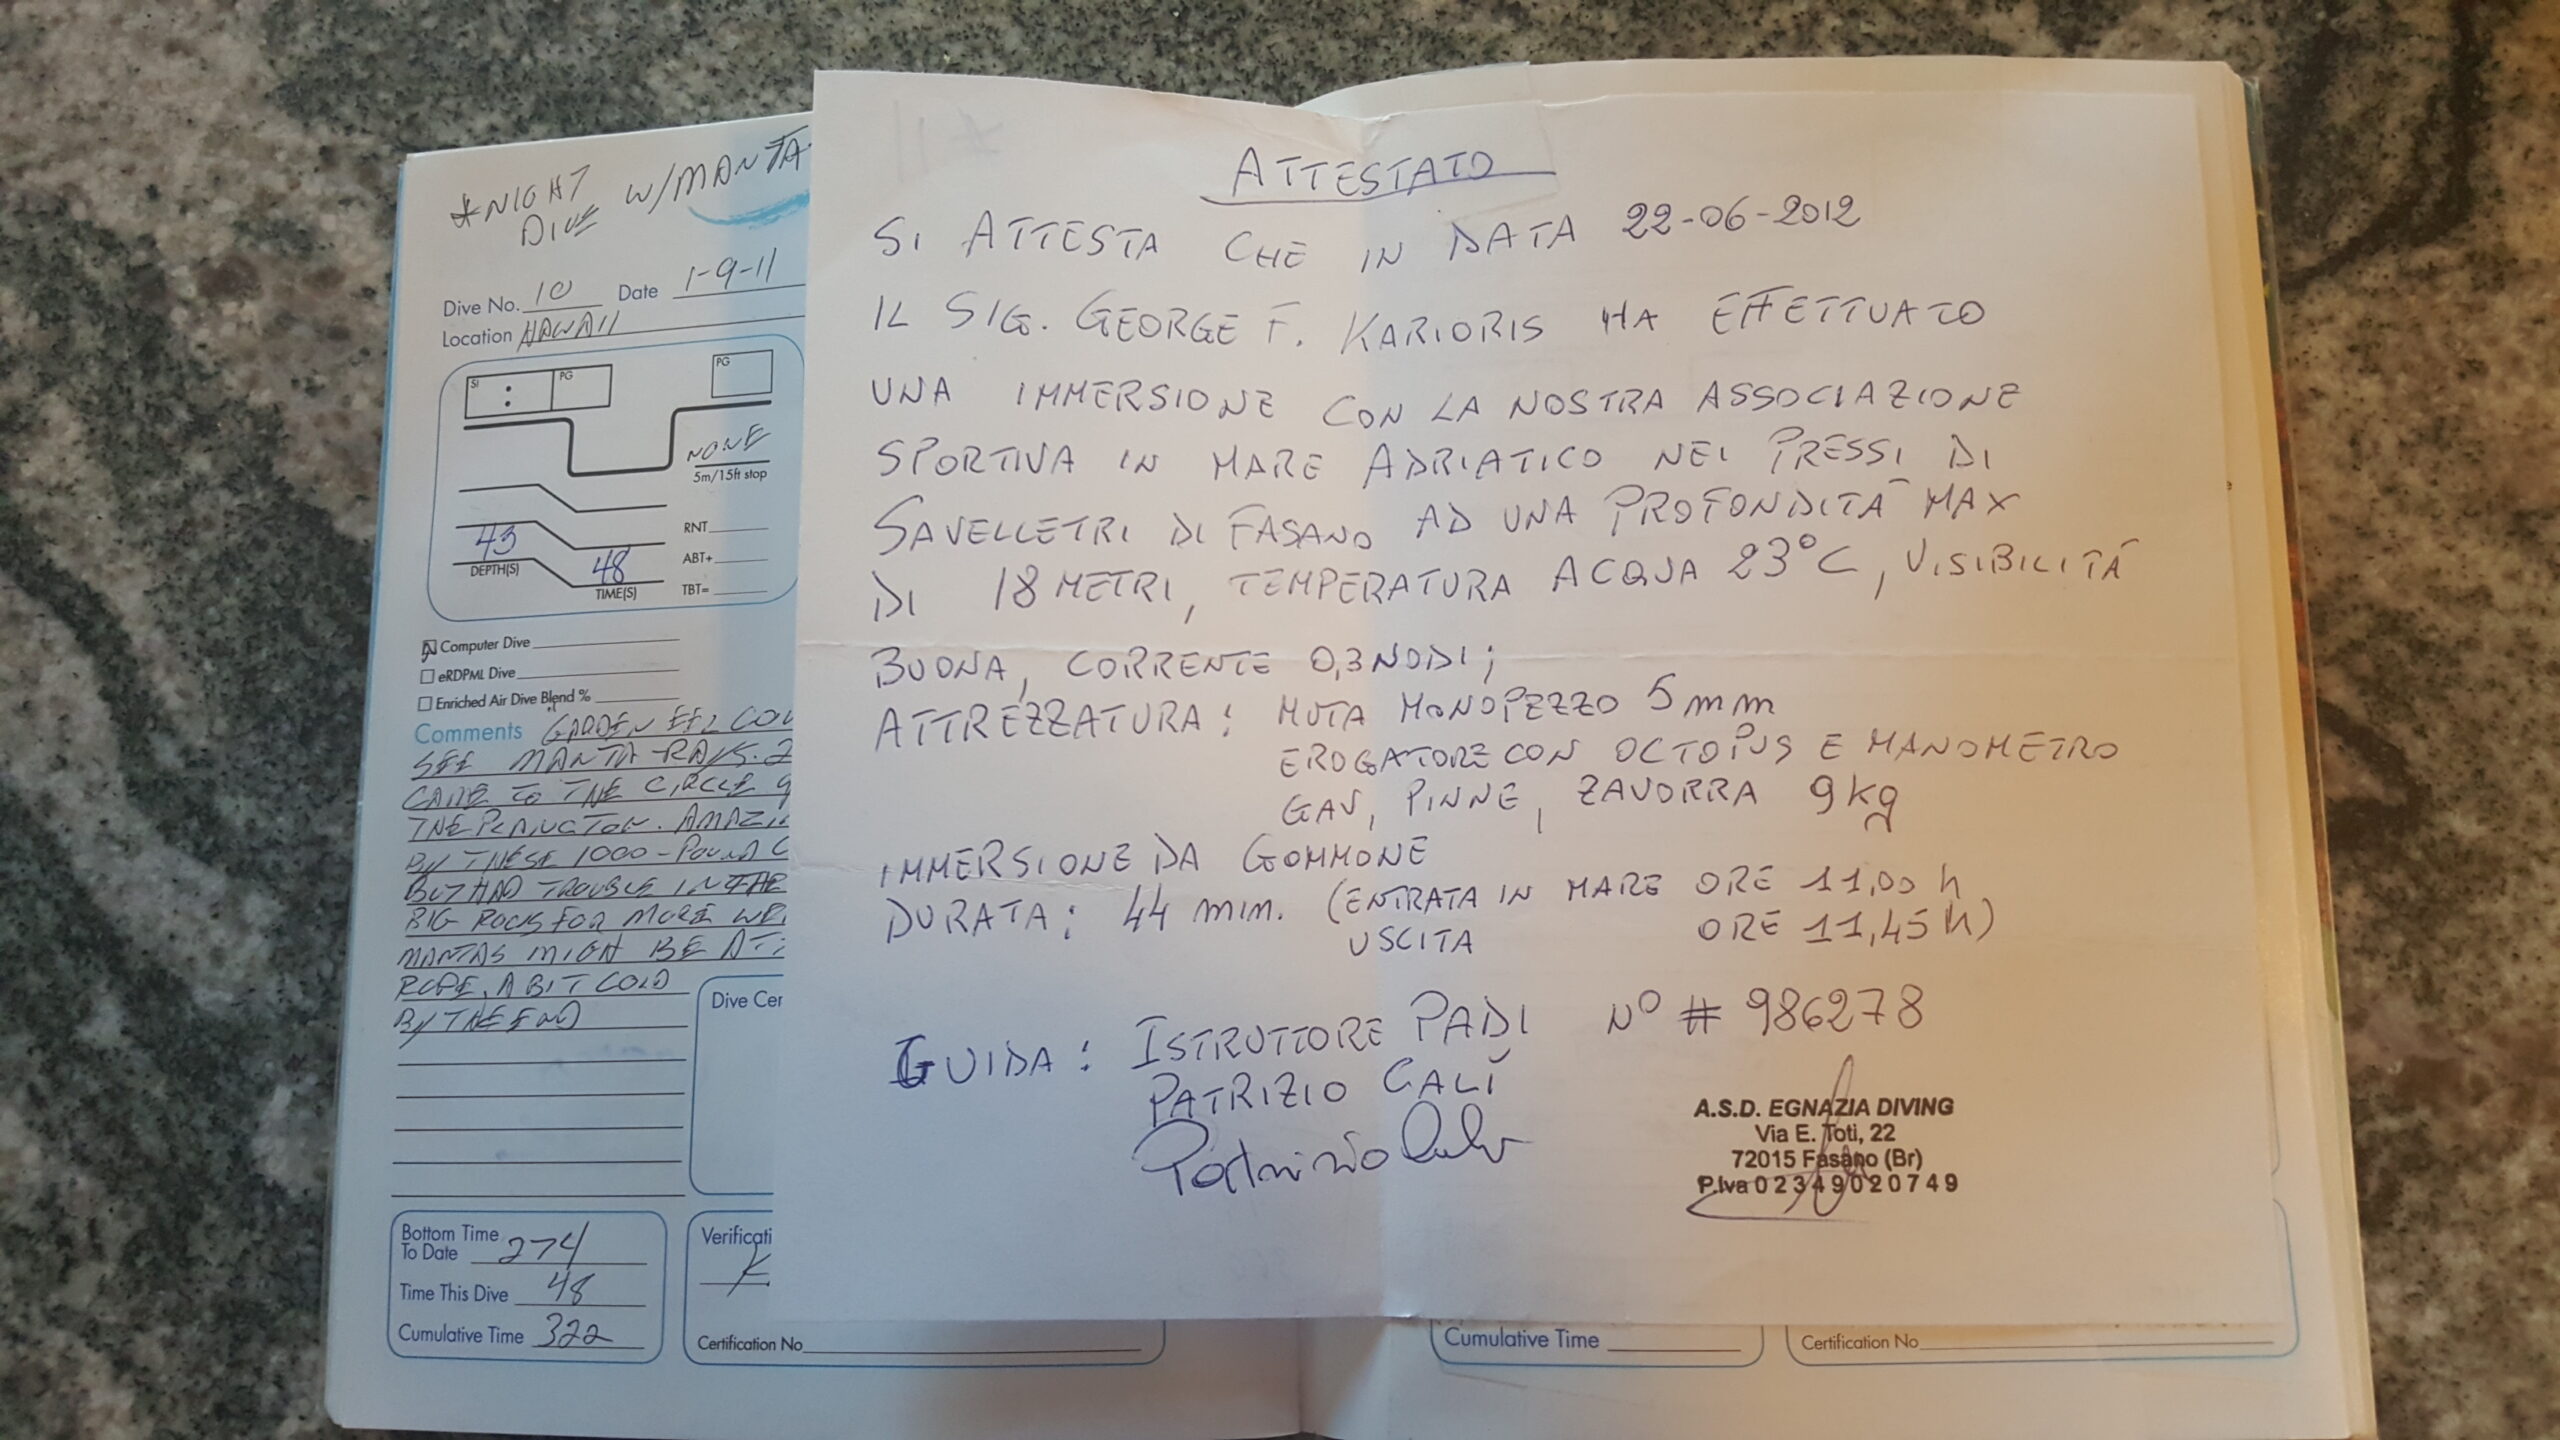 *NIGHT DIVE W/MANTA
Dive No. 10 Date 1-9-11
Location HAWAII
SI : PG PG
NONE
5m/15ft stop
43
DEPTH(S)
48
TIME(S)
RNT
ABT+
TBT=
Computer Dive
eRDPML Dive
Enriched Air Dive Blend %
Comments GARDEN EEL COV
SEE MANTA RAYS. 2
CAME TO THE CIRCLE
THE PLANCTON. AMAZI
BY THESE 1000-POUND C
BUT HAD TROUBLE IN THE
BIG ROCKS FOR MORE WEI
MANTAS MIGH BE AT
ROPE. A BIT COLD
BY THE END
Dive Cer
Bottom Time
To Date 274
Time This Dive 48
Cumulative Time 322
Verificati
Certification No
#11
ATTESTATO
SI ATTESTA CHE IN DATA 22-06-2012
IL SIG. GEORGE F. KARIORIS HA EFFETTUATO
UNA IMMERSIONE CON LA NOSTRA ASSOCIAZIONE
SPORTIVA IN MARE ADRIATICO NEI PRESSI DI
SAVELLETRI DI FASANO AD UNA PROFONDITÀ MAX
DI 18 METRI, TEMPERATURA ACQUA 23°C, VISIBILITÀ
BUONA, CORRENTE 0,3 NODI;
ATTREZZATURA: MUTA MONOPEZZO 5mm
EROGATORE CON OCTOPUS E MANOMETRO
GAV, PINNE, ZAVORRA 9kg
IMMERSIONE DA GOMMONE
DURATA: 44 min. (ENTRATA IN MARE ORE 11,00 h
USCITA ORE 11,45 h)
GUIDA: ISTRUTTORE PADI N° # 986278
PATRIZIO CALÍ
A.S.D. EGNAZIA DIVING
Via E. Toti, 22
72015 Fasano (Br)
P.Iva 02349020749
Cumulative Time
Certification No